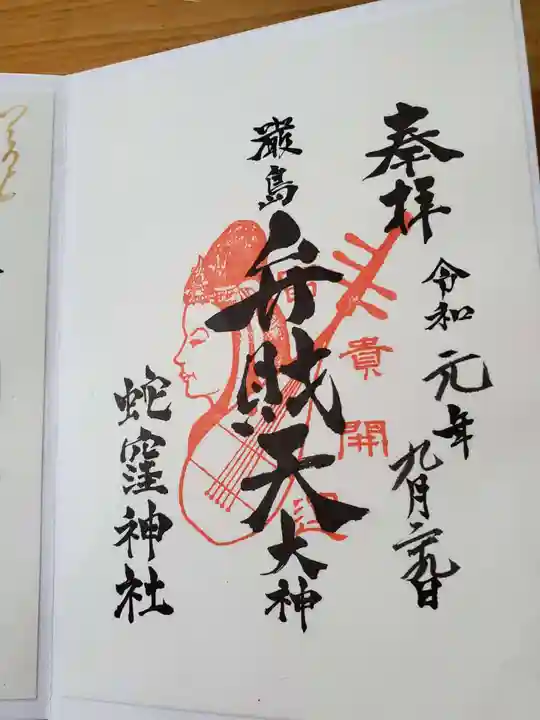 奉拝
令和元年九月二十九日
厳島
弁財天
大神
蛇窪神社
富貴開運